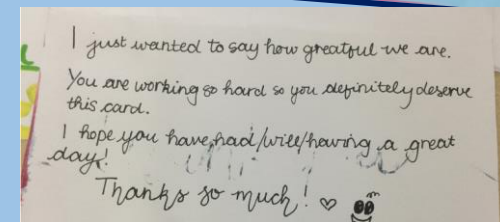 I just wanted to say how greatful we are.
You are working so hard so you definitely deserve
this card.
I hope you have,had/will/having a great
day!
Thanks so much! ♡